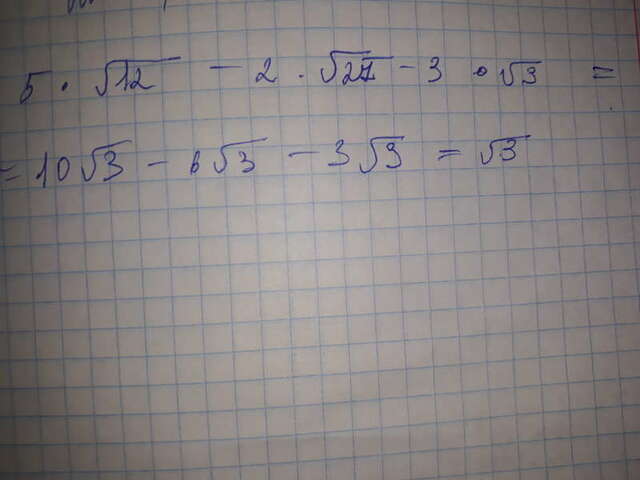 5 · √12 - 2 · √27 - 3 · √3 =
= 10√3 - 6√3 - 3√3 = √3